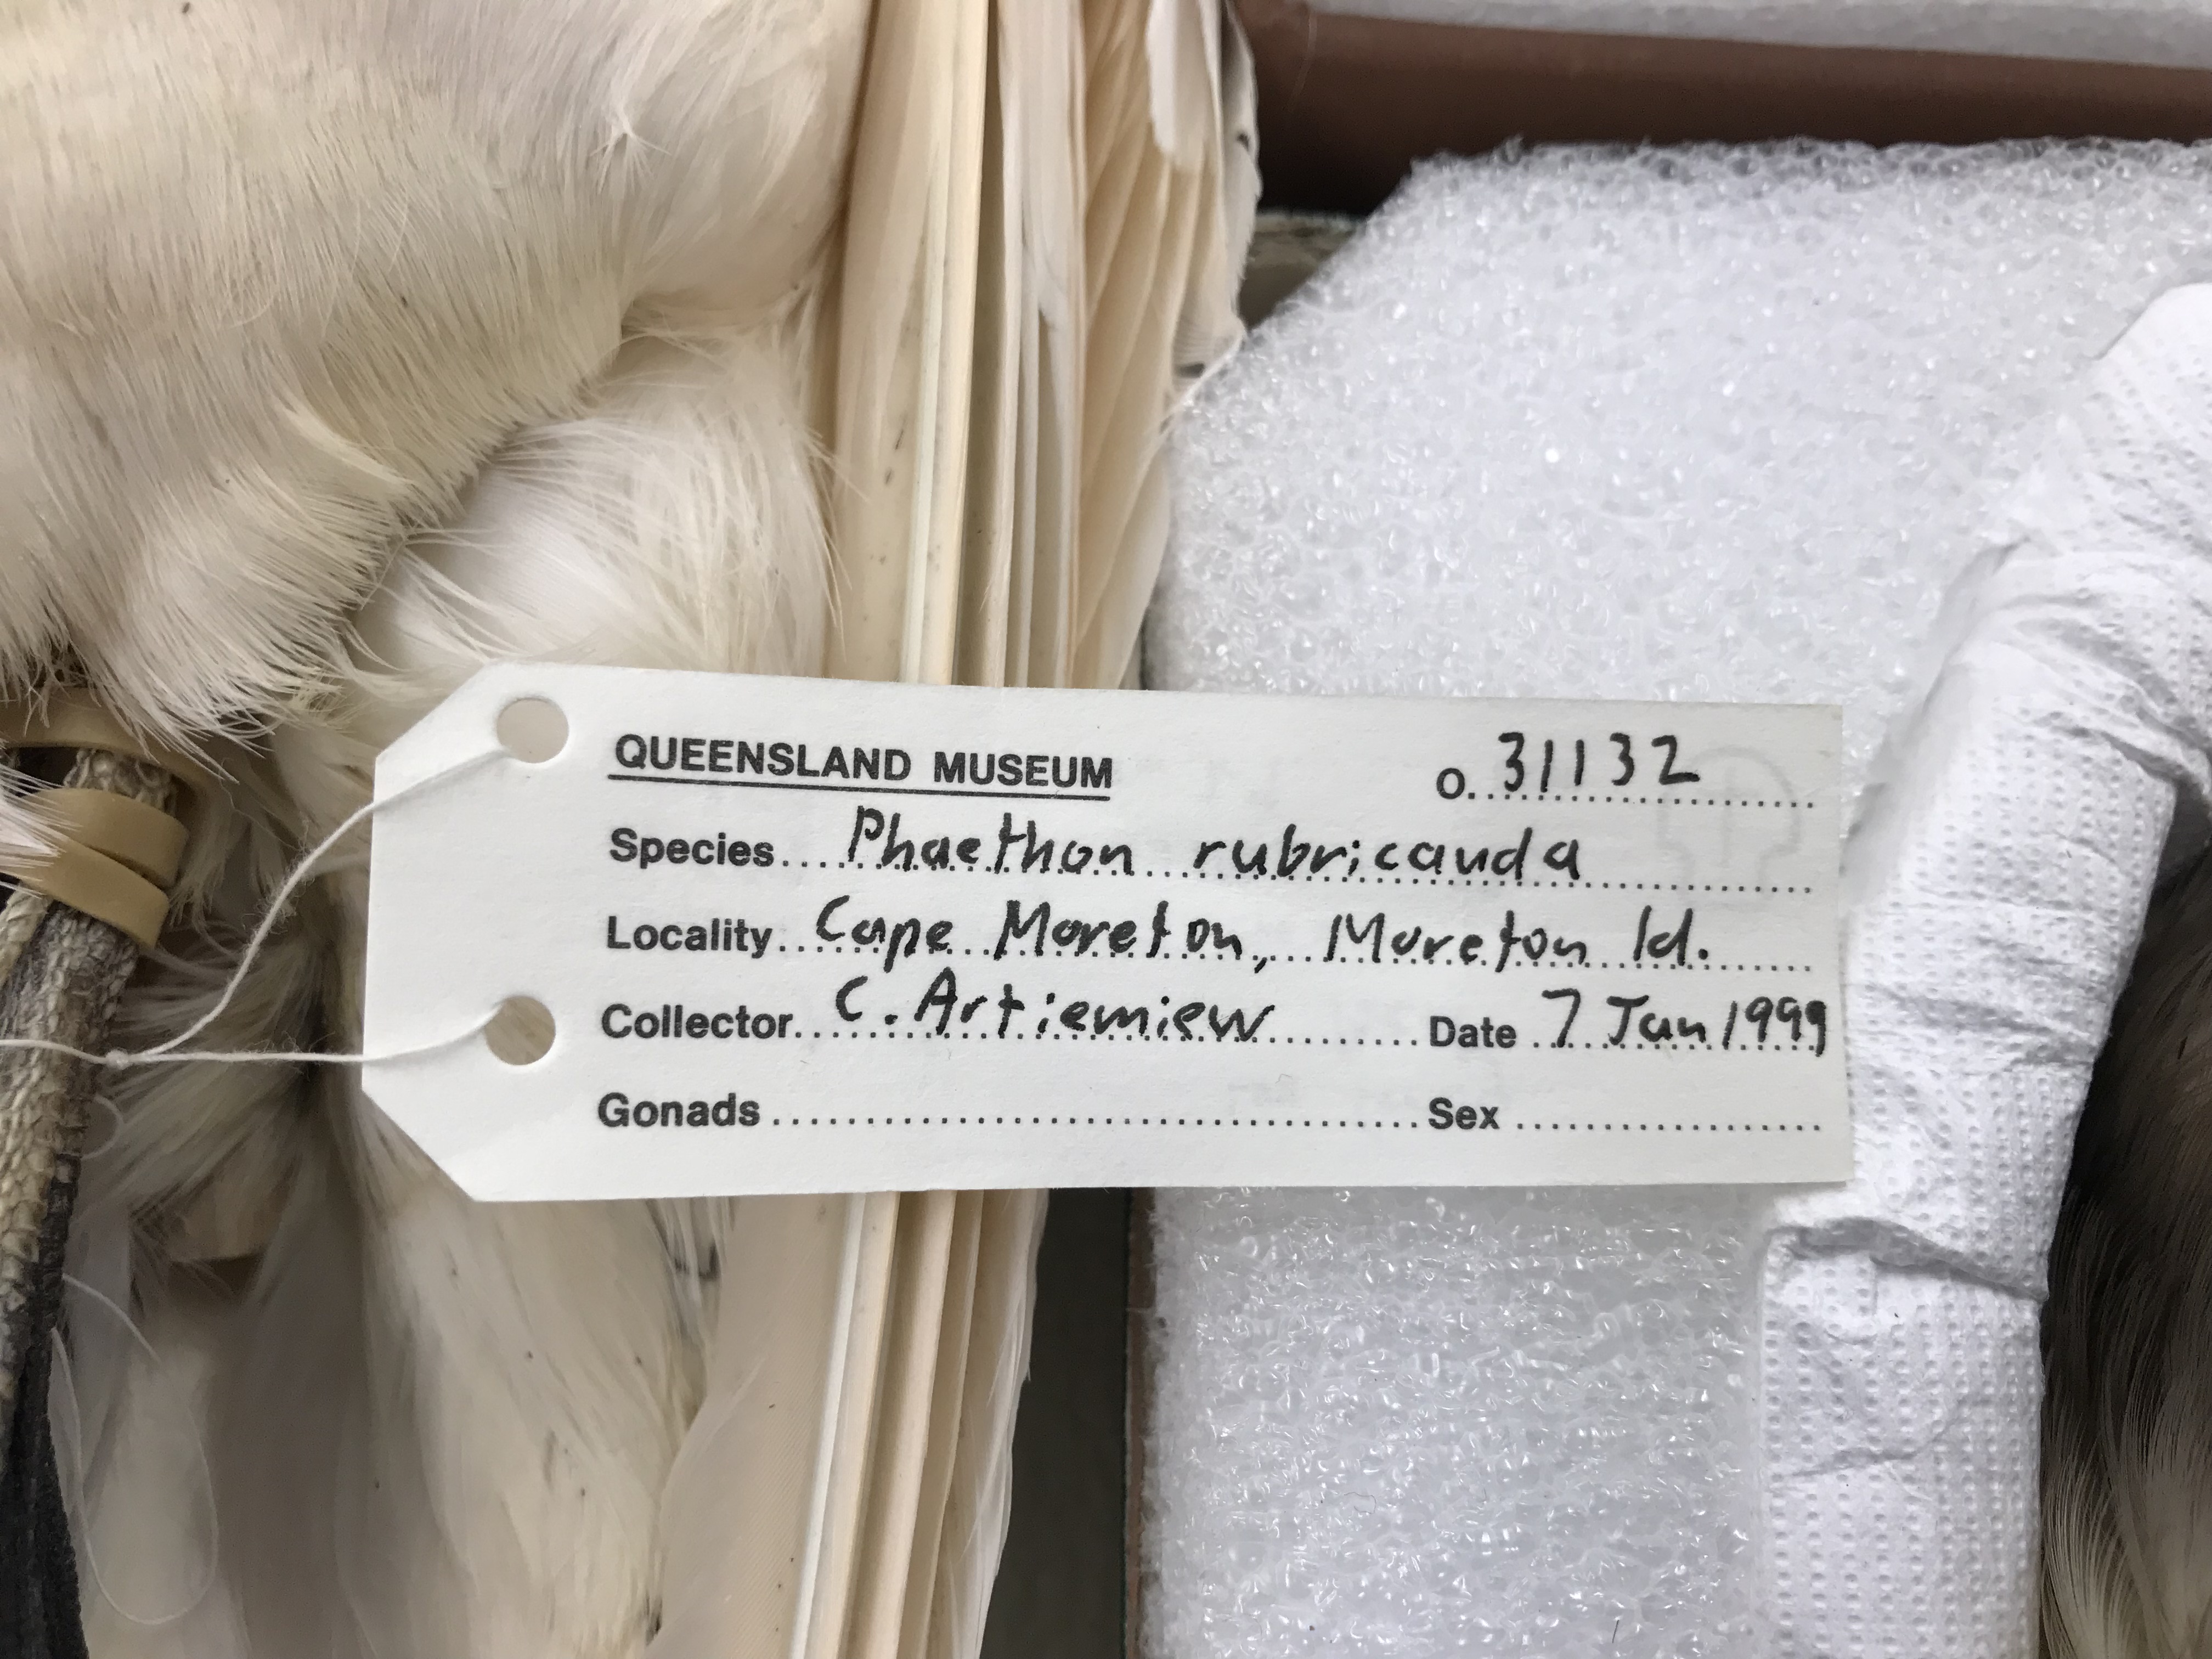 QUEENSLAND MUSEUM o.31132
Species Phaethon rubricauda
Locality Cape Moreton, Moreton Id.
Collector C. Artiemiew Date 7 Jan 1999
Gonads Sex